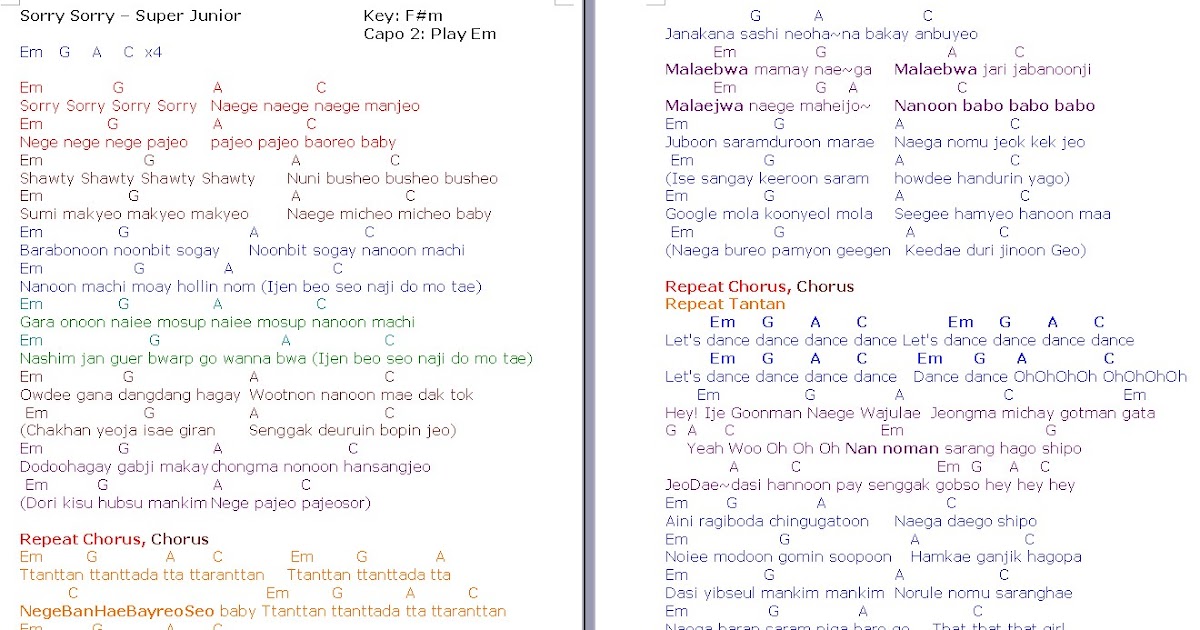 Sorry Sorry – Super Junior Key: F#m
Capo 2: Play Em
Em G A C x4
Em G A C
Sorry Sorry Sorry Sorry Naege naege naege manjeo
Em G A C
Nege nege nege pajeo pajeo pajeo baoreo baby
Em G A C
Shawty Shawty Shawty Shawty Nuni busheo busheo busheo
Em G A C
Sumi makyeo makyeo makyeo Naege micheo micheo baby
Em G A C
Barabonoon noonbit sogay Noonbit sogay nanoon machi
Em G A C
Nanoon machi moay hollin nom (Ijen beo seo naji do mo tae)
Em G A C
Gara onoon naiee mosup naiee mosup nanoon machi
Em G A C
Nashim jan guer bwarp go wanna bwa (Ijen beo seo naji do mo tae)
Em G A C
Owdee gana dangdang hagay Wootnon nanoon mae dak tok
Em G A C
(Chakhan yeoja isae giran Senggak deuruin bopin jeo)
Em G A C
Dodoohagay gabji makay chongma nonoon hansangjeo
Em G A C
(Dori kisu hubsu mankim Nege pajeo pajeosor)
Repeat Chorus, Chorus
Em G A C Em G A
Ttanttan ttanttada tta ttaranttan Ttanttan ttanttada tta
C Em G A C
NegeBanHaeBayreoSeo baby Ttanttan ttanttada tta ttaranttan
Em G A C
G A C
Janakana sashi neoha~na bakay anbuyeo
Em G A C
Malaebwa mamay nae~ga Malaebwa jari jabanoonji
Em G A C
Malaejwa naege maheijo~ Nanoon babo babo babo
Em G A C
Juboon saramduroon marae Naega nomu jeok kek jeo
Em G A C
(Ise sangay keeroon saram howdee handurin yago)
Em G A C
Google mola koonyeol mola Seegee hamyeo hanoon maa
Em G A C
(Naega bureo pamyon geegen Keedae duri jinoon Geo)
Repeat Chorus, Chorus
Repeat Tantan
Em G A C Em G A C
Let's dance dance dance dance Let's dance dance dance dance
Em G A C Em G A C
Let's dance dance dance dance Dance dance OhOhOhOh OhOhOhOh
Em G A C Em
Hey! Ije Goonman Naege Wajulae Jeongma michay gotman gata
G A C Em G
Yeah Woo Oh Oh Oh Nan noman sarang hago shipo
A C Em G A C
JeoDae~dasi hannoon pay senggak gobso hey hey hey
Em G A C
Aini ragiboda chingugatoon Naega daego shipo
Em G A C
Noiee modoon gomin soopoon Hamkae ganjik hagopa
Em G A C
Dasi yibseul mankim mankim Norule nomu saranghae
Em G A C
Naega baran saram piga baro go That that that girl